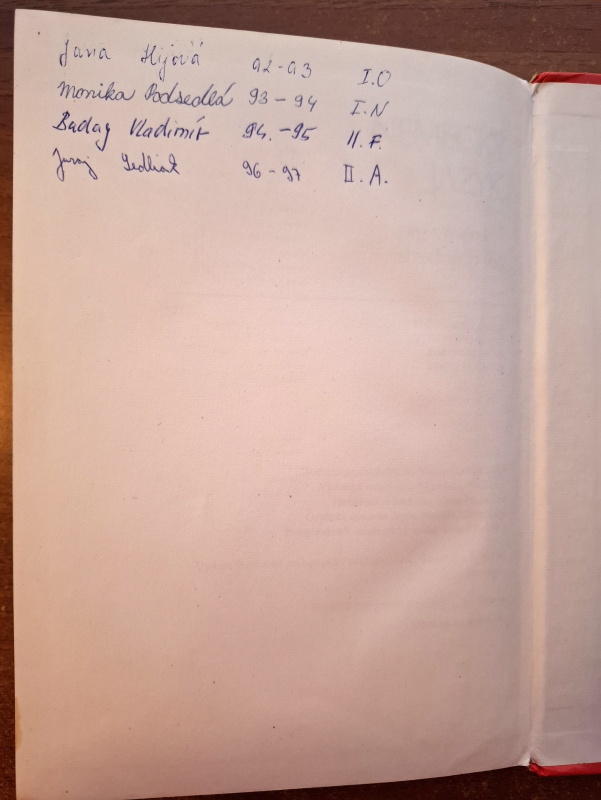 Jana Hijová 92-93 I.O
Monika Podsedlá 93-94 I.N
Baday Vladimír 94.-95 II.F.
Juraj 96-97 II.A.